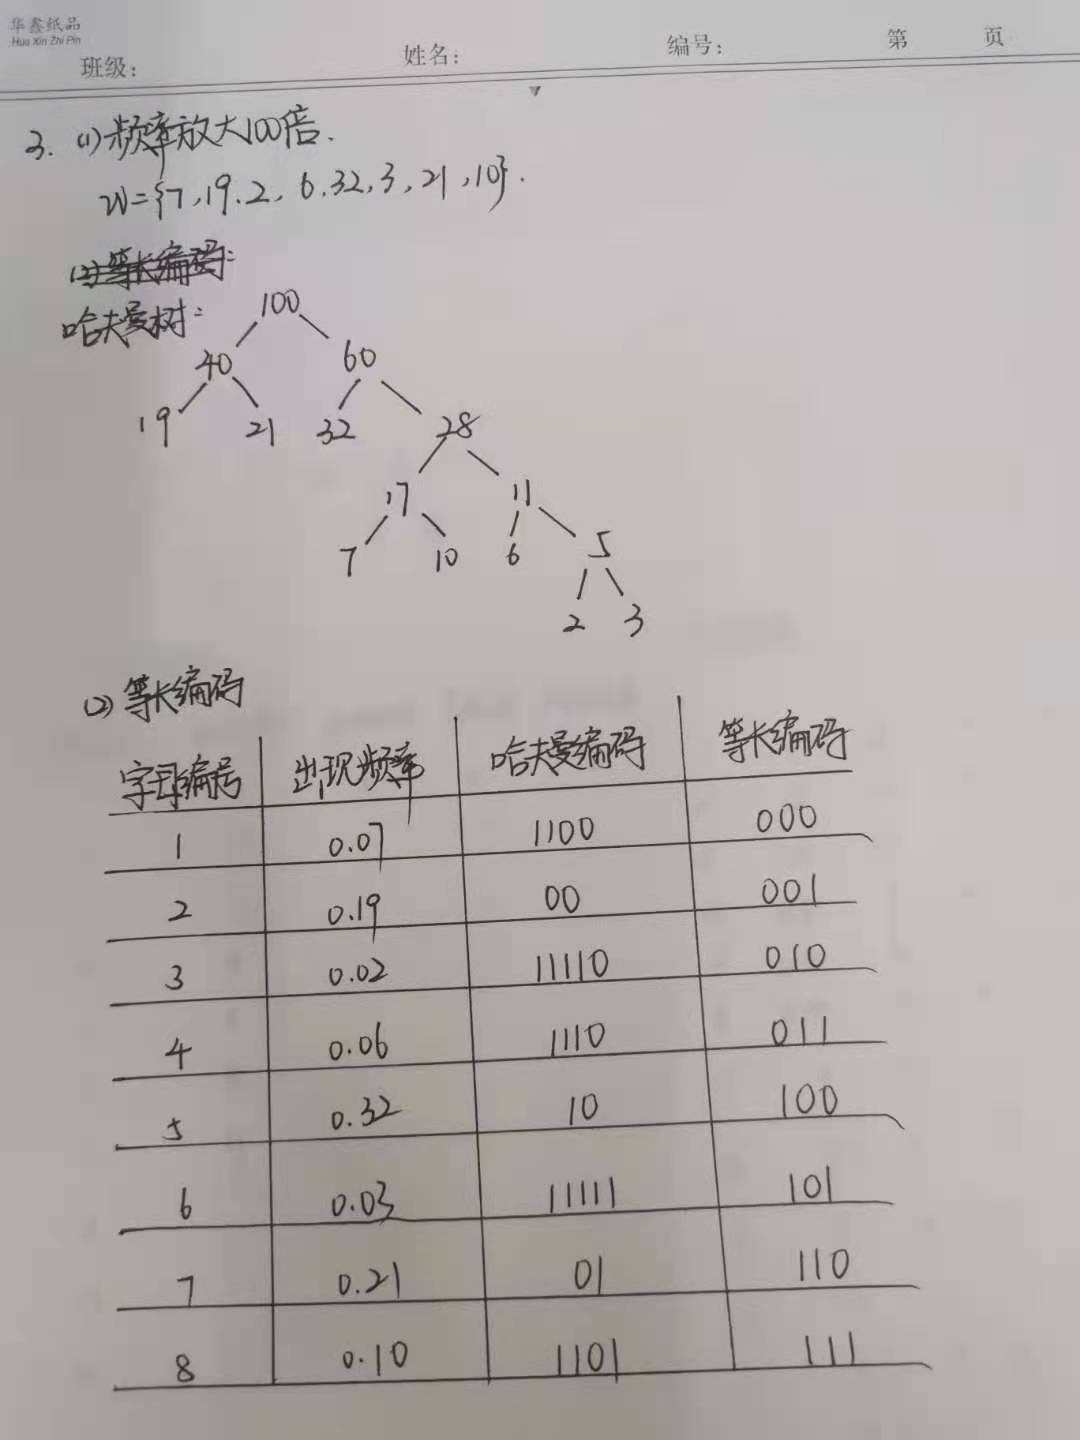 华鑫纸品
Hua Xin Zhi Pin
班级: 姓名: 编号: 第 页
3. (1)频率放大100倍.
W={7,19.2, 6.32,3,21,10}.
(2)等长编码:
哈夫曼树:
100
40 60
19 21 32 28
17 11
7 10 6 5
2 3
(2) 等长编码
字母编号 出现频率 哈夫曼编码 等长编码
1 0.07 1100 000
2 0.19 00 001
3 0.02 11110 010
4 0.06 1110 011
5 0.32 10 100
6 0.03 11111 101
7 0.21 01 110
8 0.10 1101 111